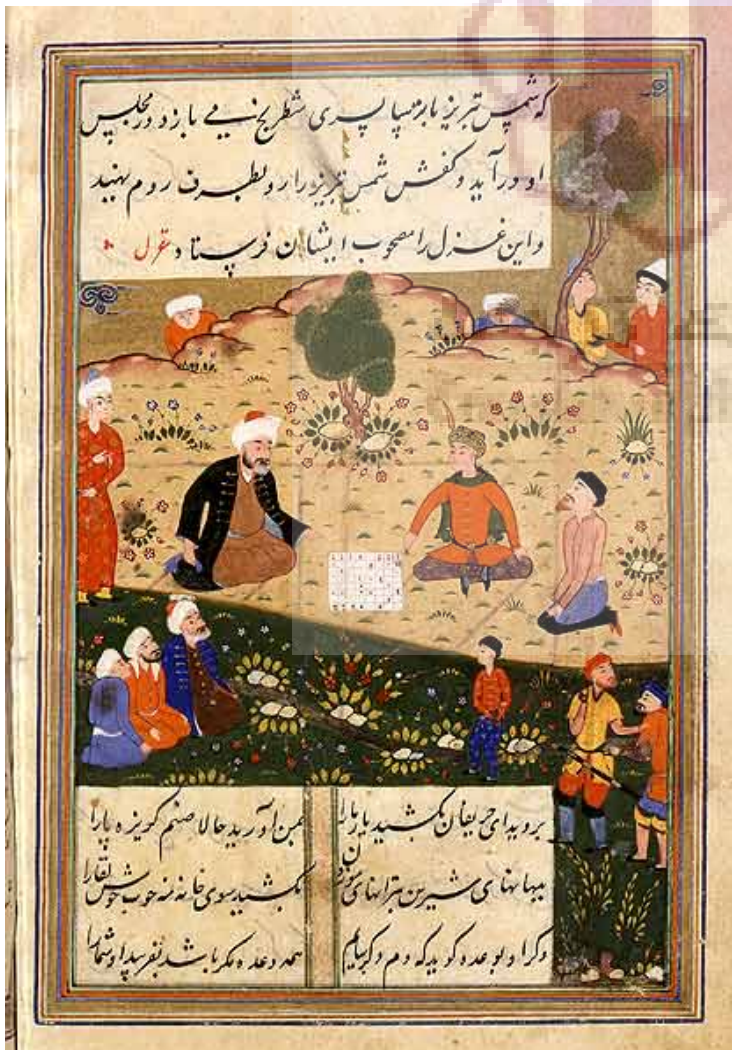 که شمس تبریز با ترسا پسری شطرنج می بازد در مجلس
او درآید و کفش شمس تبریز را رو بطرف روم نهید
و این غزل را مصحوب ایشان فرستاد غزل
بروید ای حریفان بکشید یار ما را بمن آورید حالا صنم گریزپا را
ببهانهای شیرین بترانهای موزون بکشید سوی خانه مه خوب خوش لقا را
وگر او بوعده گوید که دم دگر بیایم همه وعده مکر باشد بفریبد او شما را